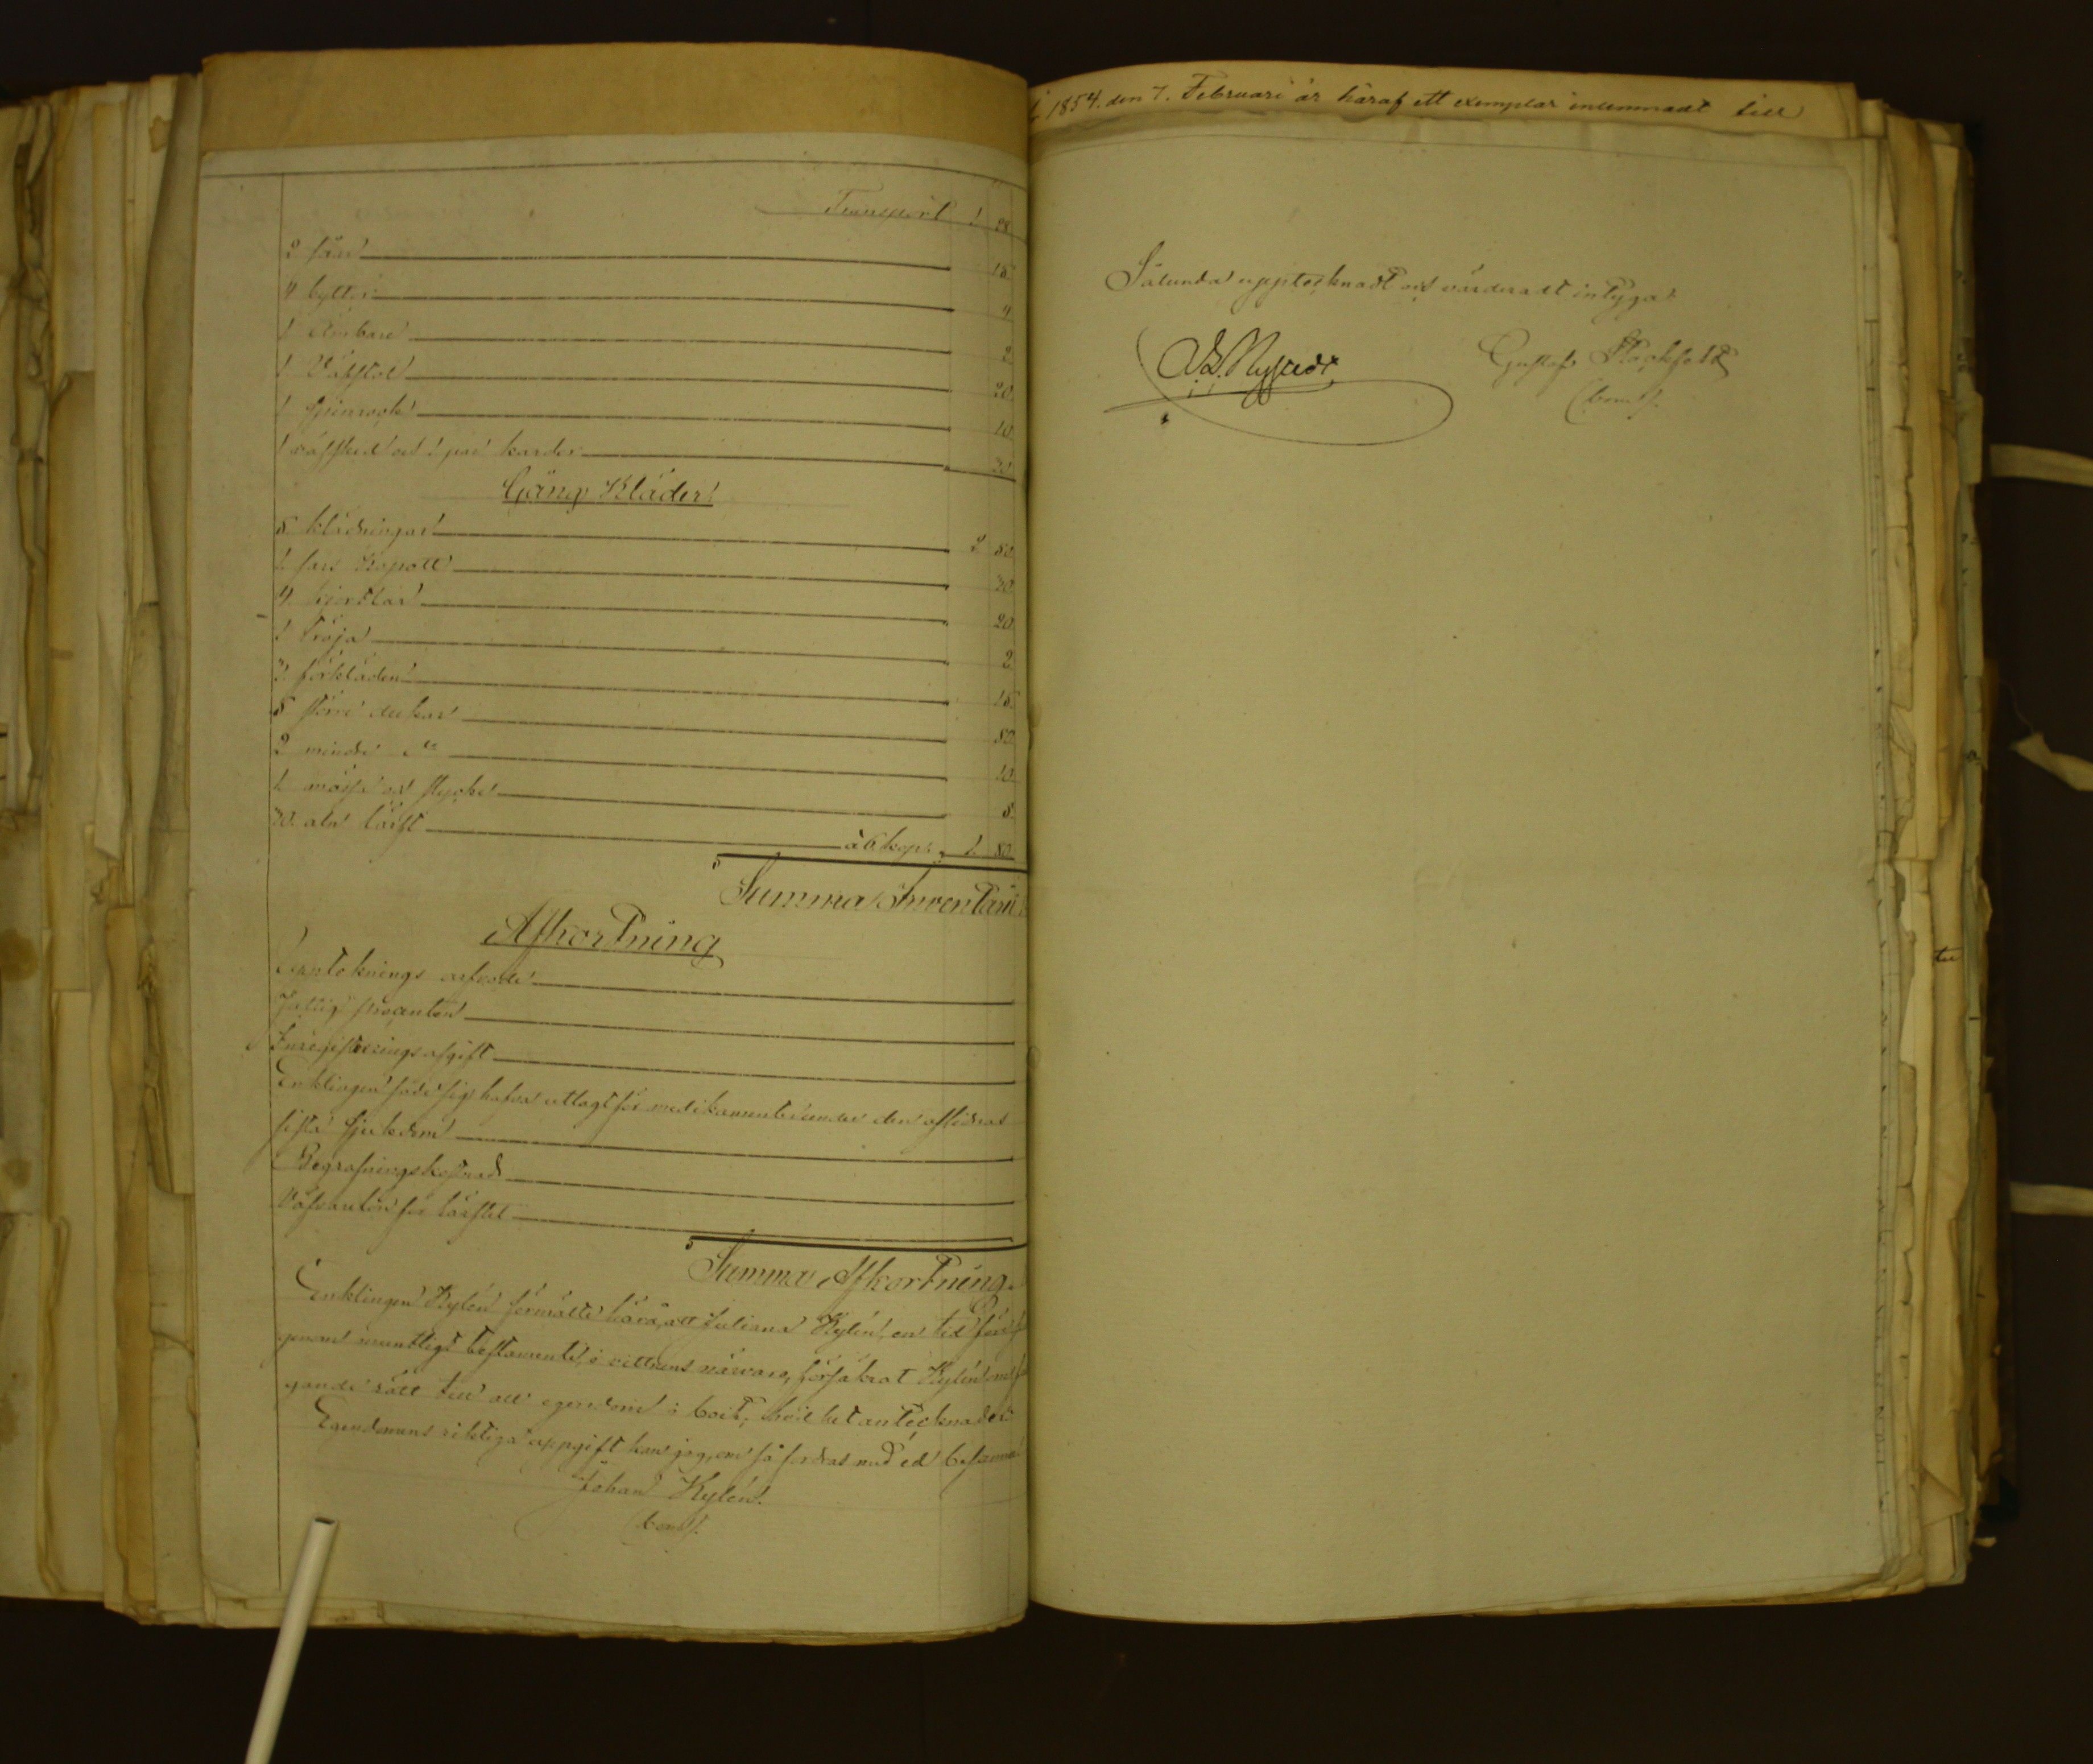 Transport 1 28
2 såar 15.
4 byttor 4
1 Ämbare 2.
1 Väfstol 20.
1 spinrock 10.
1 väfsked och 1 par karder 30.
Gång Kläder.
5 klädningar 2 80.
1 sars Kapott 30.
4 kjortlar 20.
1 tröja 2.
3. förkläden 15.
5 större dukar 80.
2 mindre do 10.
1. mössa och stycke 5.
30. aln lärft à 6 kop. 1. 80.
Summa Inventarii
Afkortning
Uppteknings arfvode
Fattig procenten
Inregistrerings afgift
Enklingen sade sig hafva utlagt för medikamenter under den aflidnas
sista sjukdom
Begrafningskostnad
Väfvarelön för lärftet
Summa Afkortning.
Enklingen Kylén förmälte härå, att Juliana Kylén, en tid före
genom muntligt testamente, i vittnens närvaro, försäkrat Kylén om
gande rätt till all egendom i boet, hvilket antecknades.
Egendomens riktiga uppgift kan jag, om så fordras med ed besanna
Johan Kylén.
bomf.
1854. den 7. Februari är häraf ett exemplar inlemnadt till
Sålunda upptecknadt och värderadt intyga
Nystedt Gustaf
bomf.